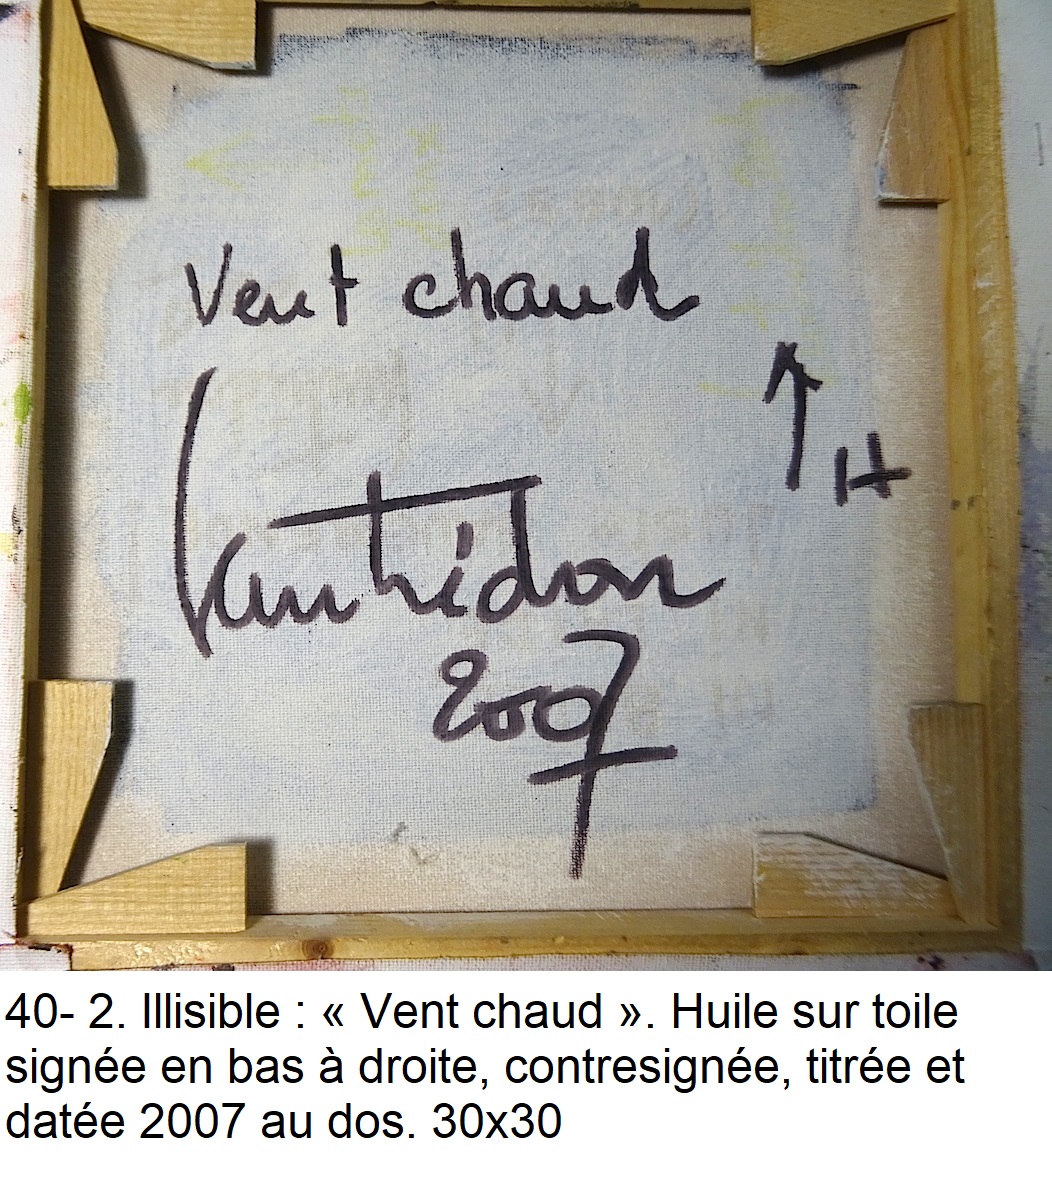 Vent chaud
↑ H
2007
40- 2. Illisible : « Vent chaud ». Huile sur toile
signée en bas à droite, contresignée, titrée et
datée 2007 au dos. 30x30